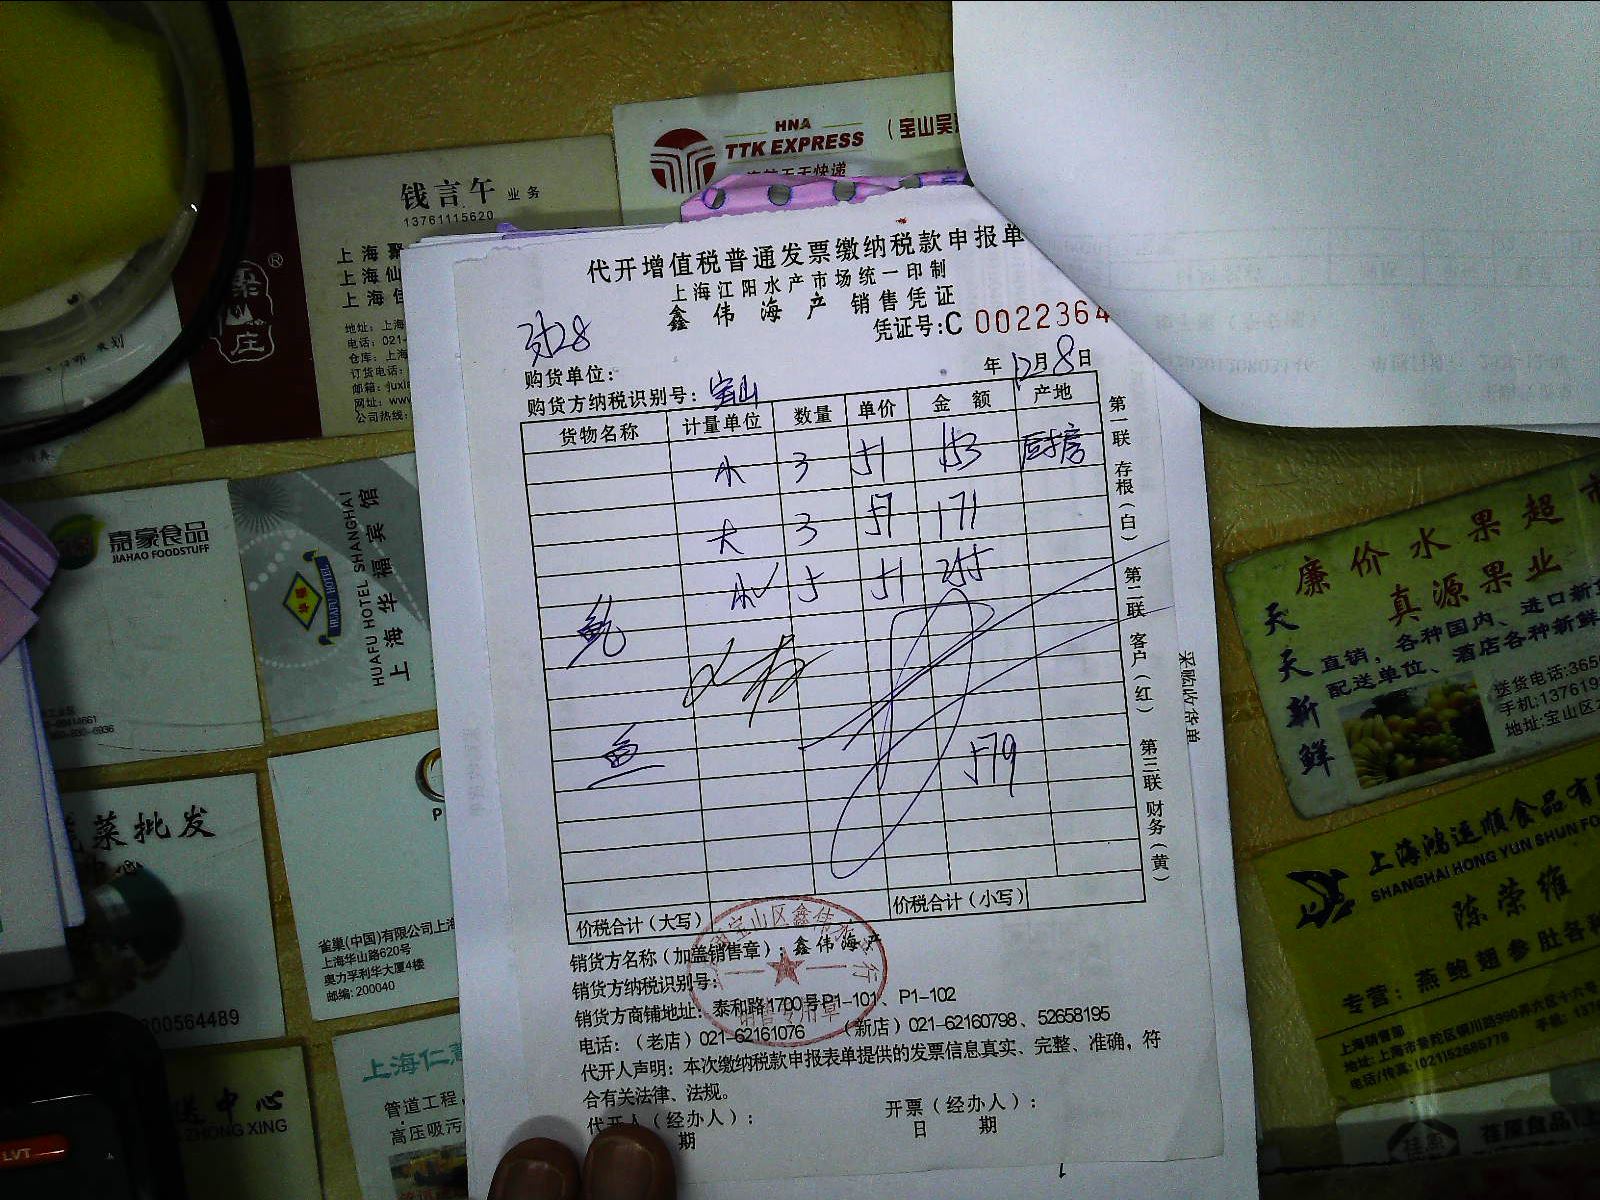 HNA
TTK EXPRESS
（宝山吴
钱言午 业务
13761115620
上海聚
上海仙
上海佳
地址：上海
电话：021-
仓库：上海
订货电话：
邮箱：
网址：www
公司热线：
代开增值税普通发票缴纳税款申报单
上海江阳水产市场统一印制
鑫伟海产 销售凭证
凭证号：C 0022364
购货单位：
年 12月8日
购货方纳税识别号： 宝山
货物名称 计量单位 数量 单价 金额 产地
小 3 51 153 厨房
大 3 57 171
小 5 51 255
鲍
鱼
579
价税合计（大写） 价税合计（小写）
销货方名称（加盖销售章）：鑫伟海产
销货方纳税识别号：
销货方商铺地址：泰和路1700号P1-101、P1-102
电话：（老店）021-62161076 （新店）021-62160798、52658195
代开人声明：本次缴纳税款申报表单提供的发票信息真实、完整、准确，符
合有关法律、法规。
代开人（经办人）： 开票（经办人）：
期 日 期
第一联 存根（白） 第二联 客户（红） 第三联 财务（黄）
嘉豪食品
JIAHAO FOODSTUFF
HUAFU HOTEL
HUAFU HOTEL SHANGHAI
上海华福宾馆
菜批发
雀巢(中国)有限公司上海
上海华山路620号
奥力孚利华大厦4楼
邮编: 200040
00564489
送中心
ZHONG XING
上海仁
管道工程，
高压吸污
LVT
廉价水果超市
真源果业
天天新鲜
直销，各种国内、进口新
配送单位、酒店各种新鲜
送货电话:365
手机:13761
地址:宝山区
上海鸿运顺食品有
SHANGHAI HONG YUN SHUN FO
陈荣维
专营：燕鲍翅参肚各
上海销售部
地址:上海市普陀区铜川路990弄六区十六号
电话/传真:(021)52685778
手机：
荏原食品(上